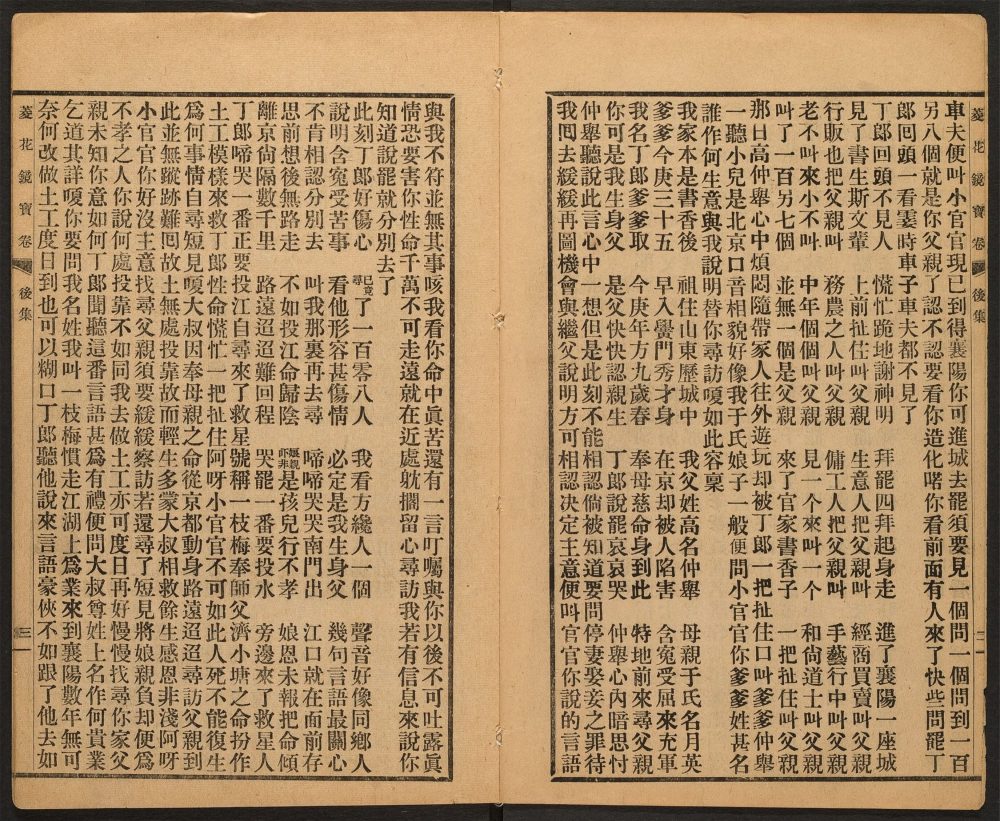 菱花鏡寶卷 後集 二
車夫便叫小官官現已到得襄陽你可進城去罷須要見一個問一個問到一百
另八個就是你父親了認不認要看你造化喏你看前面有人來了快些問罷丁
郎回頭一看霎時車子車夫都不見了
丁郎回頭不見人 慌忙跪地謝神明 拜罷四拜起身走 進了襄陽一座城
見了書生斯文輩 上前扯住叫父親 生意人把父親叫 經商買賣叫父親
行販也把父親叫 務農之人叫父親 傭工人把父親叫 手藝行中叫父親
老不叫來小不叫 中年個個叫父親 見一个來叫一个 和尙道士叫父親
叫了一百另七個 並無一個是父親 來了官家書香子 一把扯住叫父親
那日高仲舉心中煩悶隨帶家人往外遊玩却被丁郎一把扯住口叫爹爹仲舉
一聽小兒是北京口音相貌好像我于氏娘子一般便問小官官你爹爹姓甚名
誰作何生意與我說明替你尋訪嗄如此容稟
我家本是書香後 祖住山東歷城中 我父姓高名仲舉 母親于氏名月英
爹爹今庚三十五 早入黌門秀才身 在京却被人陷害 含寃受屈來充軍
我名丁郎爹爹取 今庚年方九歲春 奉母慈命身到此 特地前來尋父親
你可是我生身父 是父快快認親生 丁郎說罷哀哀哭 仲舉心內暗思忖
仲舉聽說此言心中一想但是此刻不能相認倘被知道要問停妻娶妾之罪待
我囘去緩緩再圖機會與繼父說明方可相認決定主意便叫官官你說的言語
與我不符並無其事咳我看你命中眞苦還有一言叮囑與你以後不可吐露眞
情恐要害你性命千萬不可走遠就在近處躭擱留心尋訪我若有信息來說你
知道說罷就分別去了
此刻丁郎好傷心 已竟尋了一百零八人 我看方纔人一個 聲音好像同鄉人
說明含寃受苦事 看他形容甚傷情 必定是我生身父 幾句言語最關心
不肯相認分別去 叫我那裏再去尋 啼啼哭哭南門出 江口就在面前存
思前想後無路走 不如投江命歸陰 娘親吓非是孩兒行不孝 娘恩未報把命傾
離京尙隔數千里 路遠迢迢難回程 哭罷一番要投水 旁邊來了救星人
丁郎啼哭一番正要投江自尋來了救星號稱一枝梅奉師父濟小塘之命扮作
土工模樣來救丁郎性命慌忙一把扯住阿呀小官官不可如此人死不能復生
爲何事情自尋短見嗄大叔因奉母親之命從京都動身路遠迢迢尋訪父親到
此並無蹤跡難囘故土無處投靠故而輕生多蒙大叔相救餘生感恩非淺阿呀
小官官你好沒主意找尋父親須要緩緩察訪若還尋了短見將娘親負却便爲
不孝之人你說何處投靠不如同我去做土工亦可度日再好慢慢找尋你家父
親未知你意如何丁郎聞聽這番言語甚爲有禮便問大叔尊姓上名作何貴業
乞道其詳嗄你要問我名姓我叫一枝梅慣走江湖上爲業來到襄陽數年無可
奈何改做土工度日到也可以糊口丁郎聽他說來言語豪俠不如跟了他去如
菱花鏡寶卷 後集 三